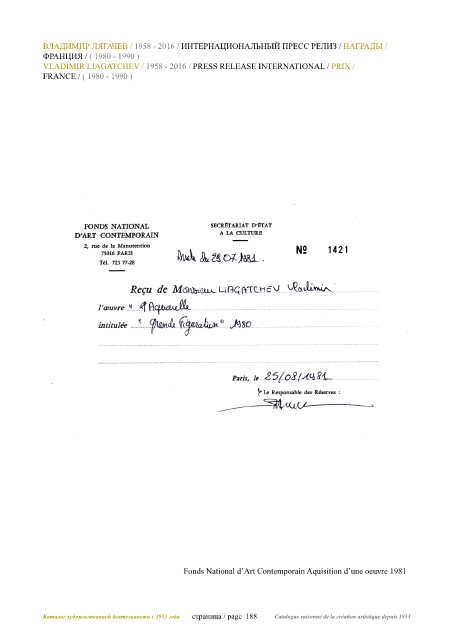 ВЛАДИМИР ЛЯГАЧЕВ / 1958 - 2016 / ИНТЕРНАЦИОНАЛЬНЫЙ ПРЕСС РЕЛИЗ / НАГРАДЫ /
ФРАНЦИЯ / ( 1980 - 1990 )
VLADIMIR LIAGATCHEV / 1958 - 2016 / PRESS RELEASE INTERNATIONAL / PRIX /
FRANCE / ( 1980 - 1990 )
FONDS NATIONAL
D'ART CONTEMPORAIN
2, rue de la Manutention
75016 PARIS
Tél. 723 77-28
SECRÉTARIAT D'ÉTAT
A LA CULTURE
du 28.07.1981.
Nº 1421
Reçu de Monsieur LIAGATCHEV Vladimir
l'œuvre " Aquarelle
intitulée " Grande Figuration " 1980
Paris, le 25/08/1981
Le Responsable des Réserves :
Fonds National d'Art Contemporain Aquisition d'une oeuvre 1981
Каталог художественной деятельности с 1953 года страница / page 188 Catalogue raisonné de la création artistique depuis 1953